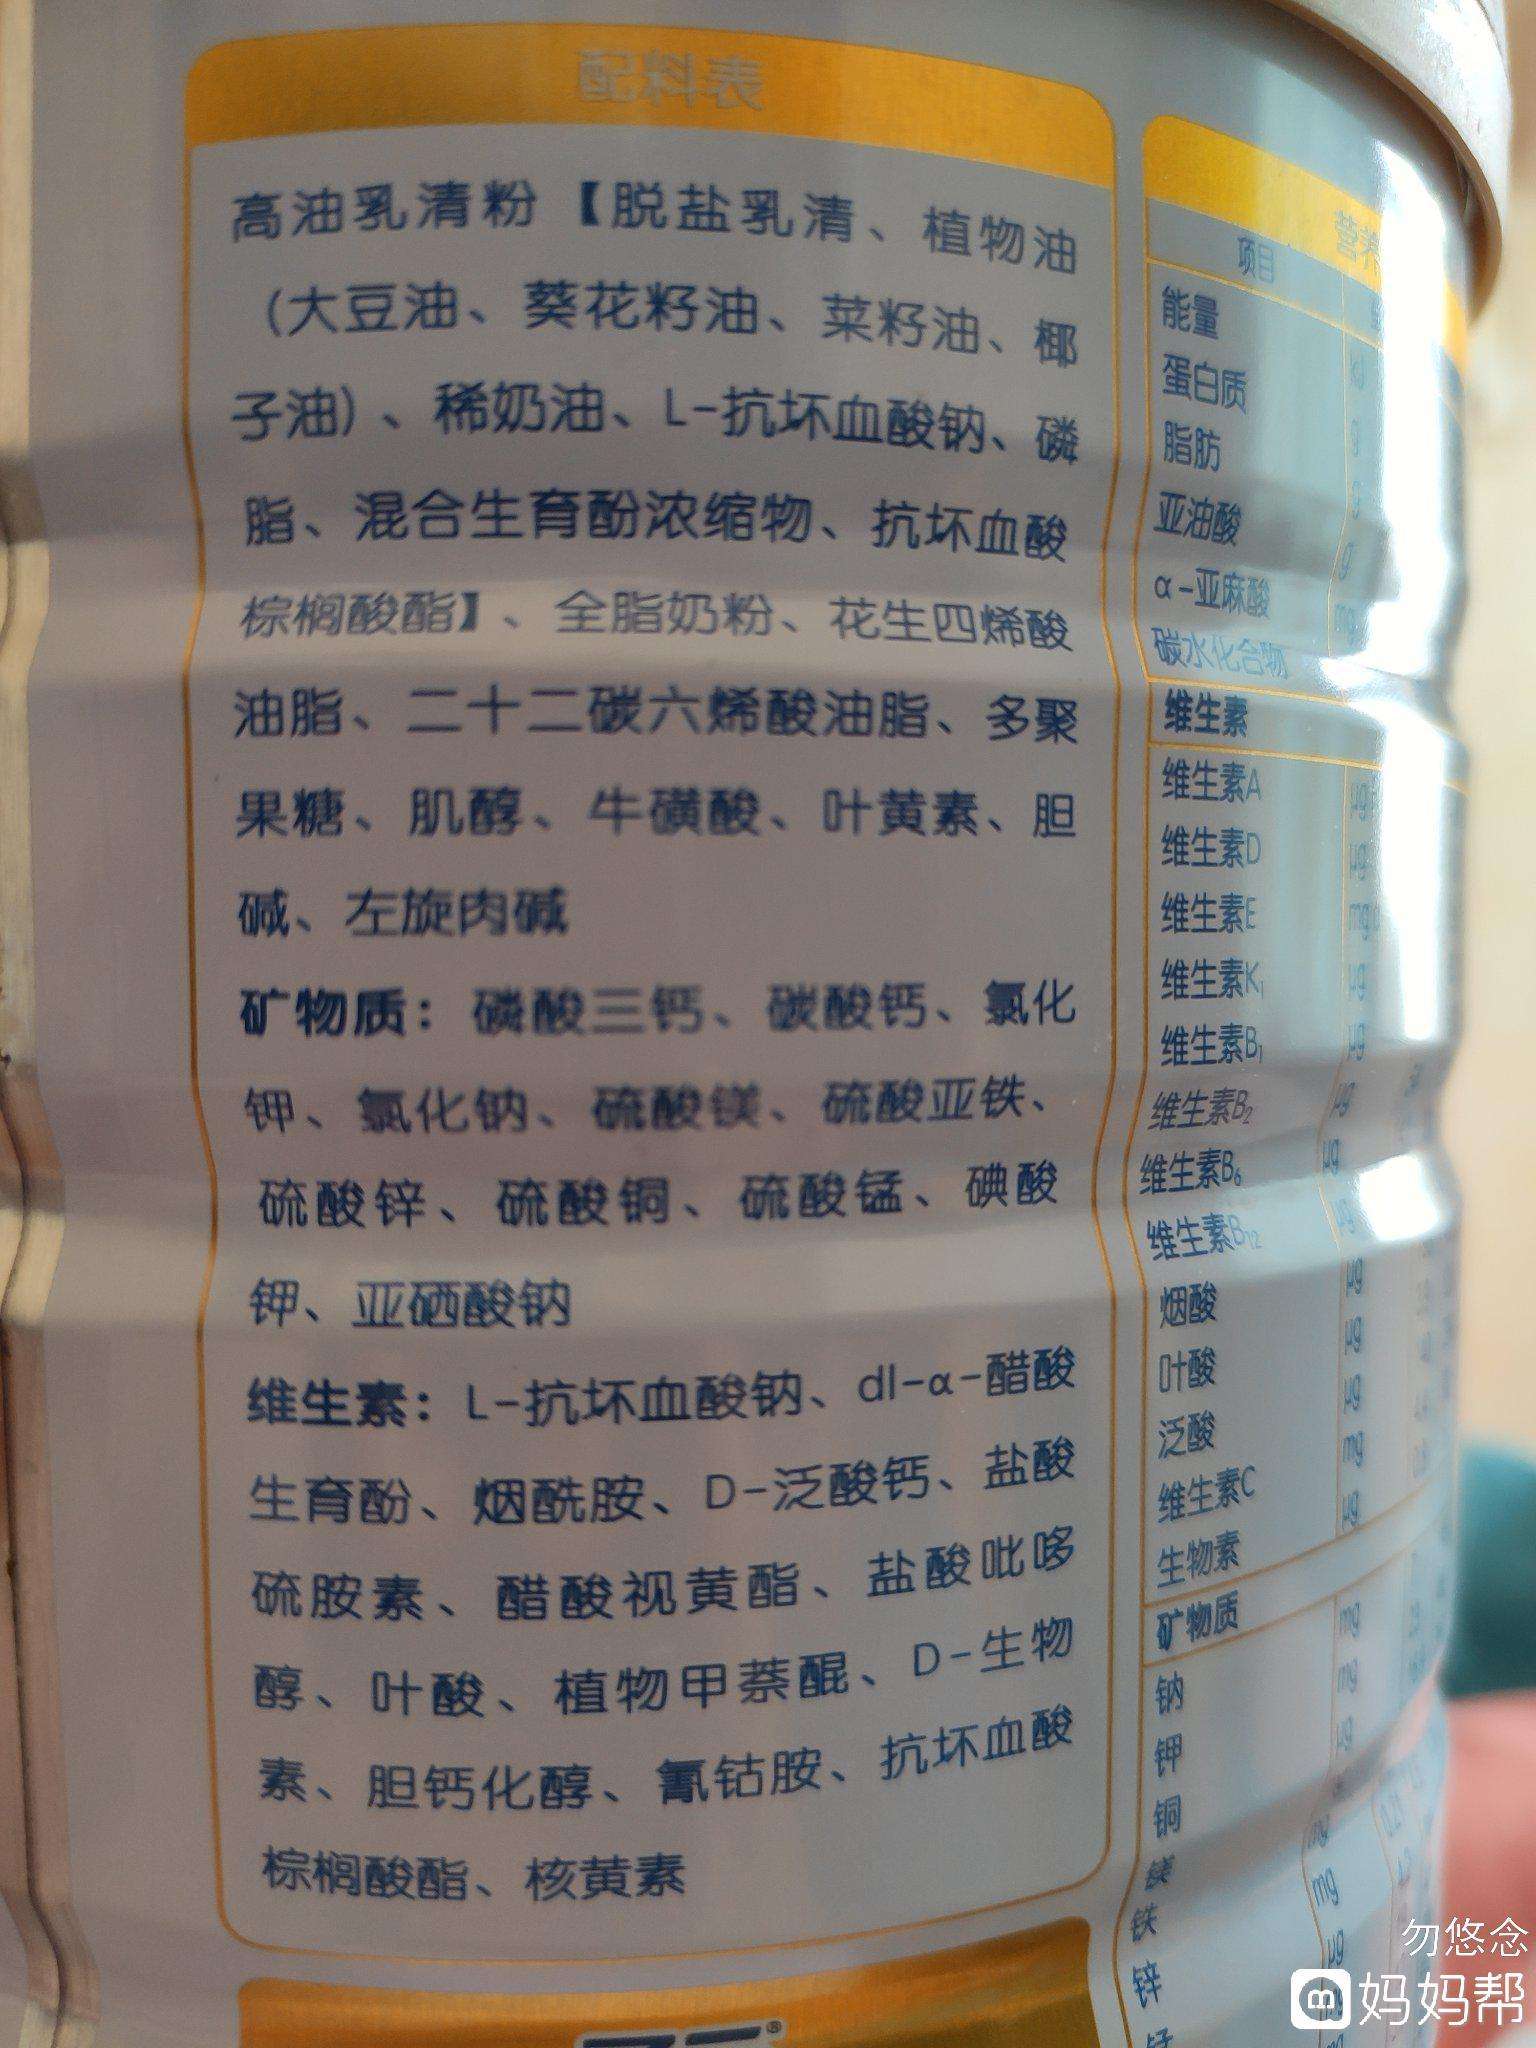 配料表
高油乳清粉【脱盐乳清、植物油
（大豆油、葵花籽油、菜籽油、椰
子油）、稀奶油、L-抗坏血酸钠、磷
脂、混合生育酚浓缩物、抗坏血酸
棕榈酸酯】、全脂奶粉、花生四烯酸
油脂、二十二碳六烯酸油脂、多聚
果糖、肌醇、牛磺酸、叶黄素、胆
碱、左旋肉碱
矿物质：磷酸三钙、碳酸钙、氯化
钾、氯化钠、硫酸镁、硫酸亚铁、
硫酸锌、硫酸铜、硫酸锰、碘酸
钾、亚硒酸钠
维生素：L-抗坏血酸钠、dl-α-醋酸
生育酚、烟酰胺、D-泛酸钙、盐酸
硫胺素、醋酸视黄酯、盐酸吡哆
醇、叶酸、植物甲萘醌、D-生物
素、胆钙化醇、氰钴胺、抗坏血酸
棕榈酸酯、核黄素
营养
项目
能量
蛋白质 g
脂肪 g
亚油酸 g
α-亚麻酸 mg
碳水化合物
维生素
维生素A μg
维生素D μg
维生素E mg
维生素K₁ μg
维生素B₁ μg
维生素B₂ μg
维生素B₆ μg
维生素B₁₂ μg
烟酸 μg
叶酸 μg
泛酸 μg
维生素C mg
生物素 μg
矿物质
钠 mg
钾 mg
铜 μg
镁 mg
铁 mg
锌
锰
®
勿悠念
妈妈帮